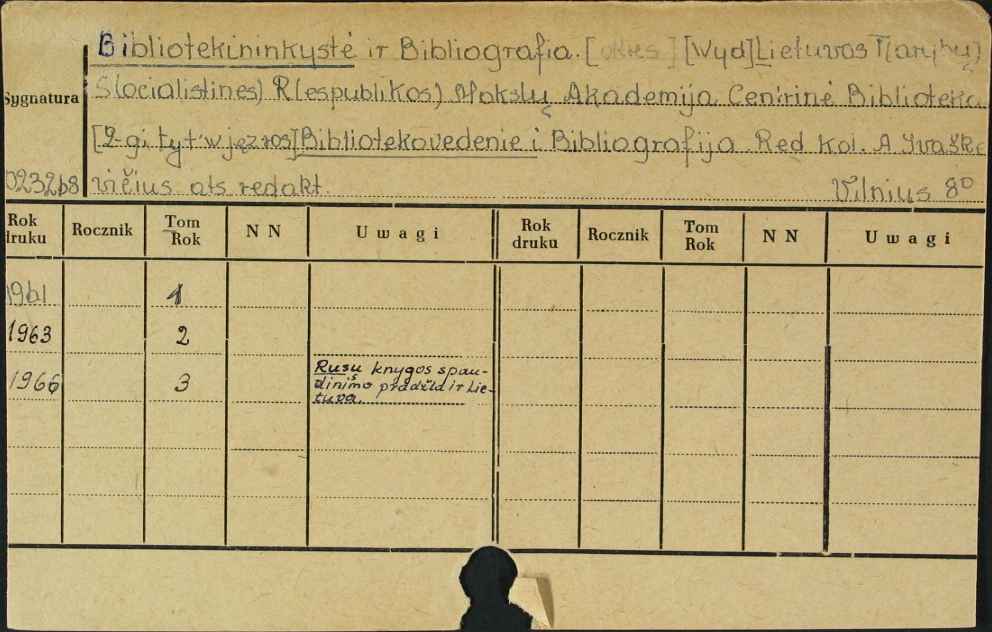 Bibliotekininkystė ir Bibliografia. [okres.] [Wyd] Lietuvos T(arybų)
Sygnatura S(ocialistines) R(espublikos) Mokslų Akademija. Centrinė Biblioteka
[2-gi tyt. w jęz ros] Bibliotekovedenie i Bibliografija. Red. Kol. A Ivaške
023268 vičius ats redakt. Vilnius 8º
Rok druku Rocznik Tom Rok N N Uwagi Rok druku Rocznik Tom Rok N N Uwagi
1961 1
1963 2
1966 3 Rusų knygos spau-
dinimo pradžia ir Lie-
tuva.